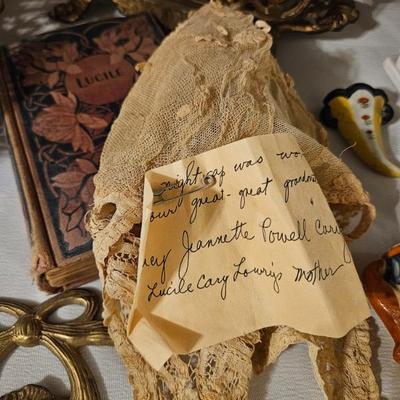 LUCILE
night cap was wo
our great-great grandm
cey Jeannette Powell Cary
Lucile Cary Lowry's mother